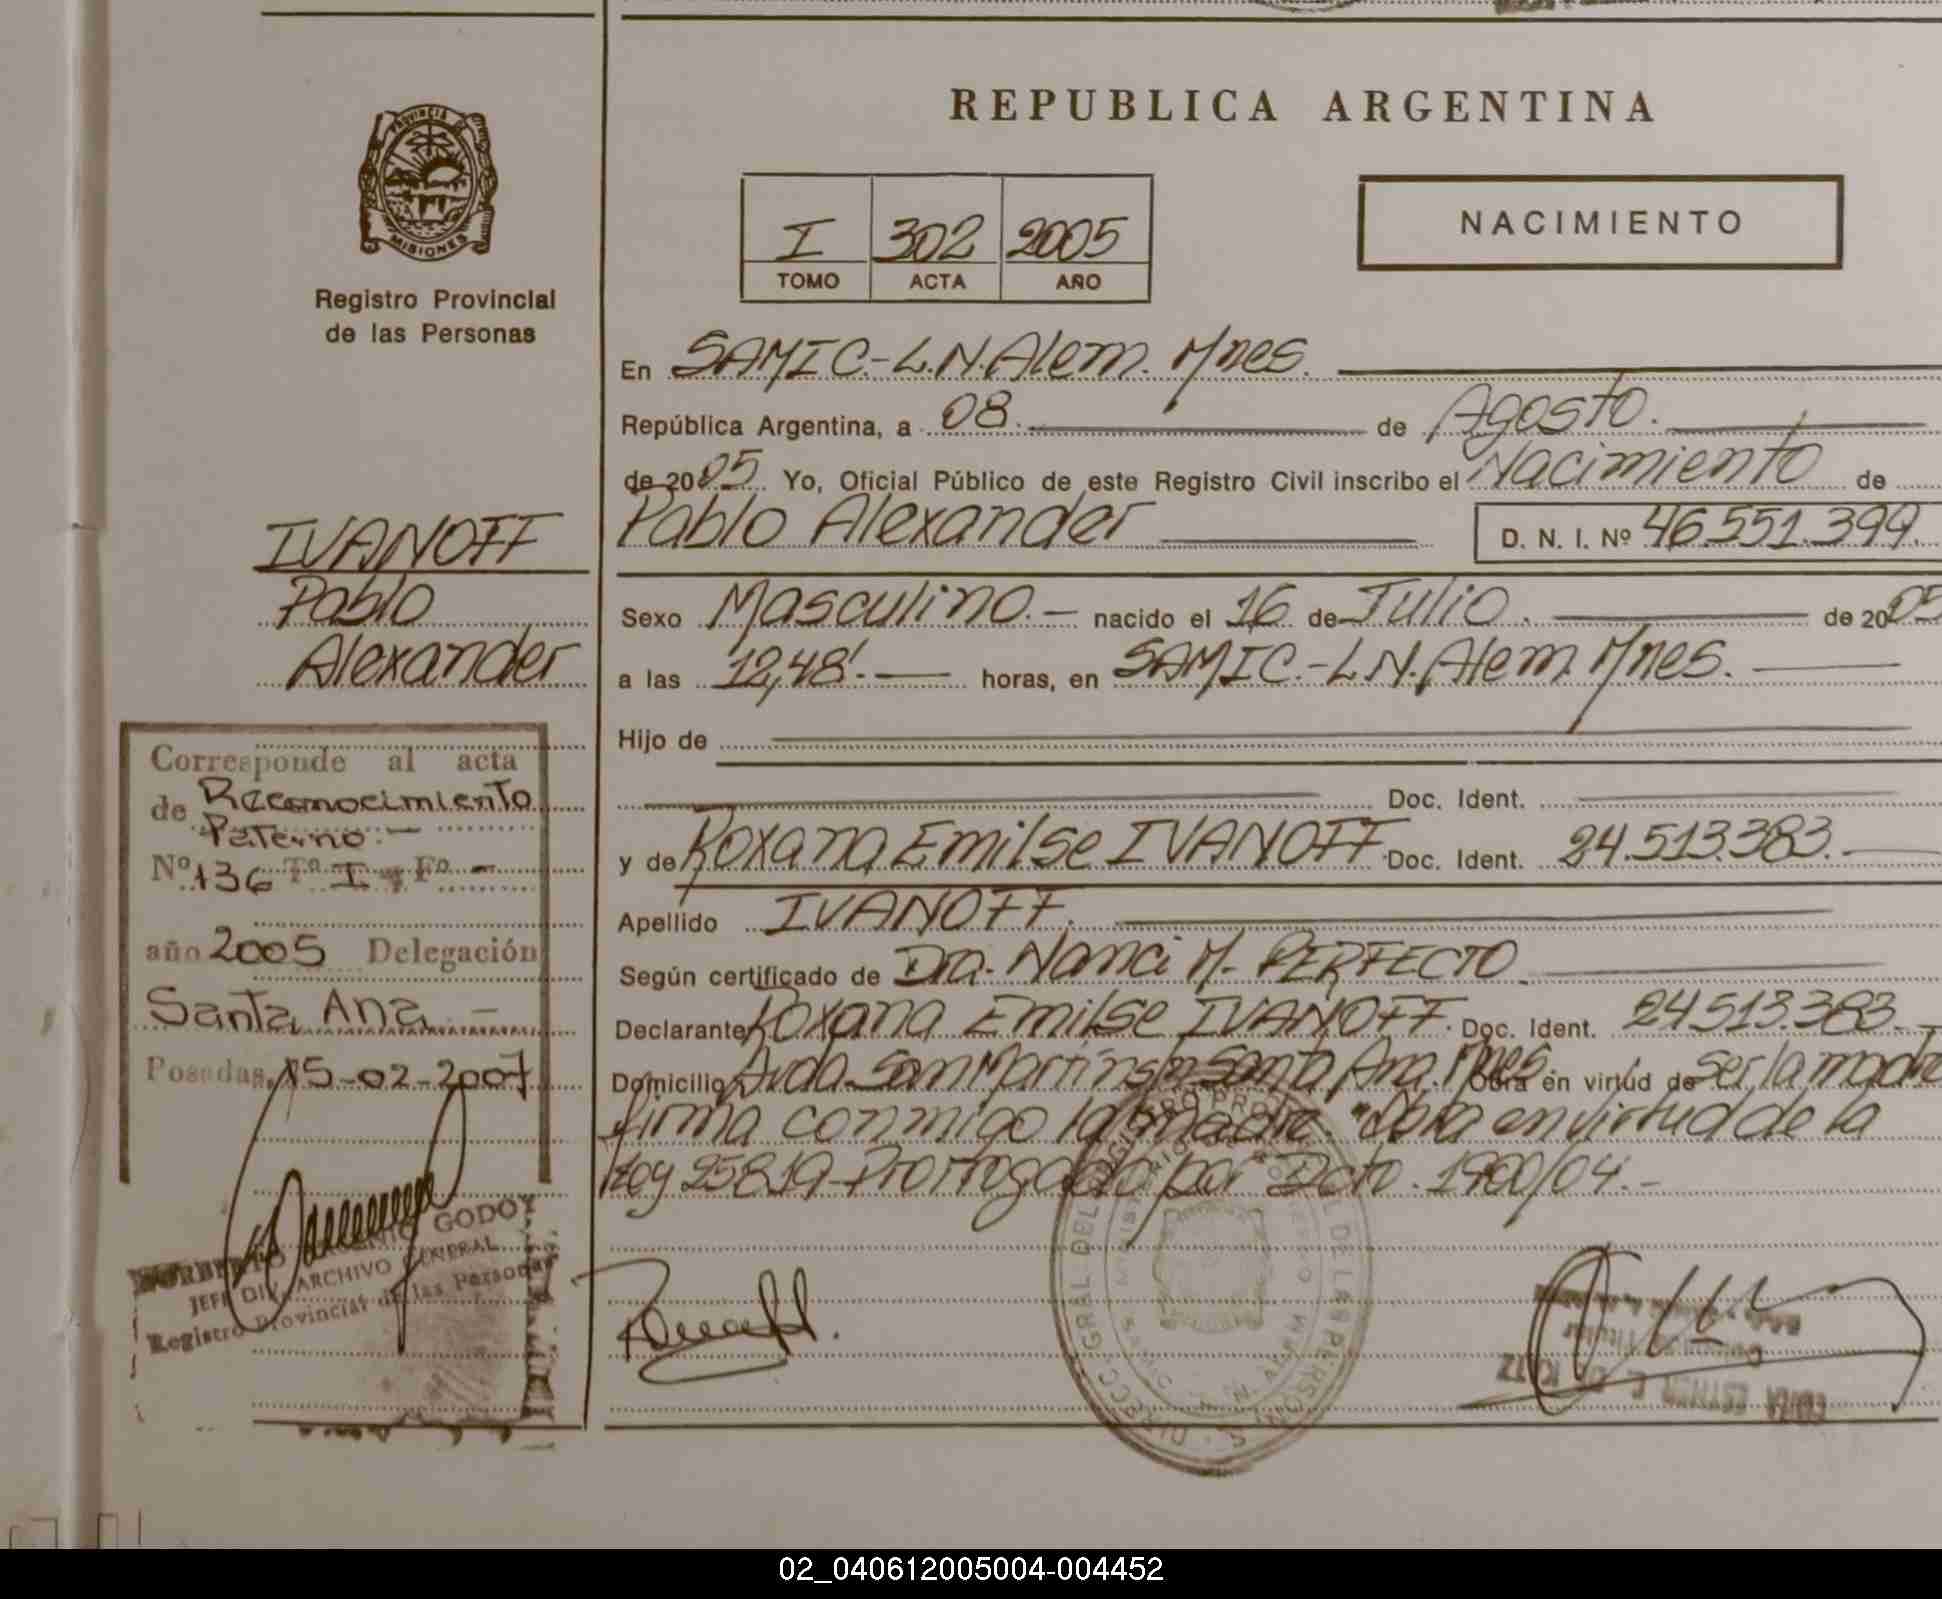 REPUBLICA ARGENTINA
PROVINCIA DE
MISIONES
Registro Provincial
de las Personas
I 302 2005
TOMO ACTA AÑO
NACIMIENTO
En SAMIC.-L.N.Alem. Mnes.
República Argentina, a 08. de Agosto.
de 2005 Yo, Oficial Público de este Registro Civil inscribo el Nacimiento de
Pablo Alexander D. N. I. Nº 46.551.399.
IVANOFF
Pablo
Alexander
Sexo Masculino.- nacido el 16 de Julio. de 2005
a las 12,48'.- horas, en SAMIC.-L.N.Alem. Mnes.
Hijo de
Doc. Ident.
y de Roxana Emilse IVANOFF Doc. Ident. 24.513.383.
Apellido IVANOFF.
Según certificado de Dra. Nanci M. PERFECTO
Declarante Roxana Emilse IVANOFF. Doc. Ident. 24.513.383.
Domicilio Avda San Martín s/n Santa Ana. Mnes. Obra en virtud de ser la madre
firma conmigo la madre. "Obra en virtud de la
Ley 25819-Prorrogada por Dcto. 1900/04.-
Corresponde al acta
de Reconocimiento
Paterno.-
Nº 136 Tº I y Fº -
año 2005 Delegación
Santa Ana -
Posadas, 15-02-2007
GODOY
JEFE DIV. ARCHIVO GENERAL
Registro Provincial de las Personas
DIRECC. GRAL DEL REGISTRO PROVINCIAL DE LAS PERSONAS
L. N. ALEM
02_040612005004-004452